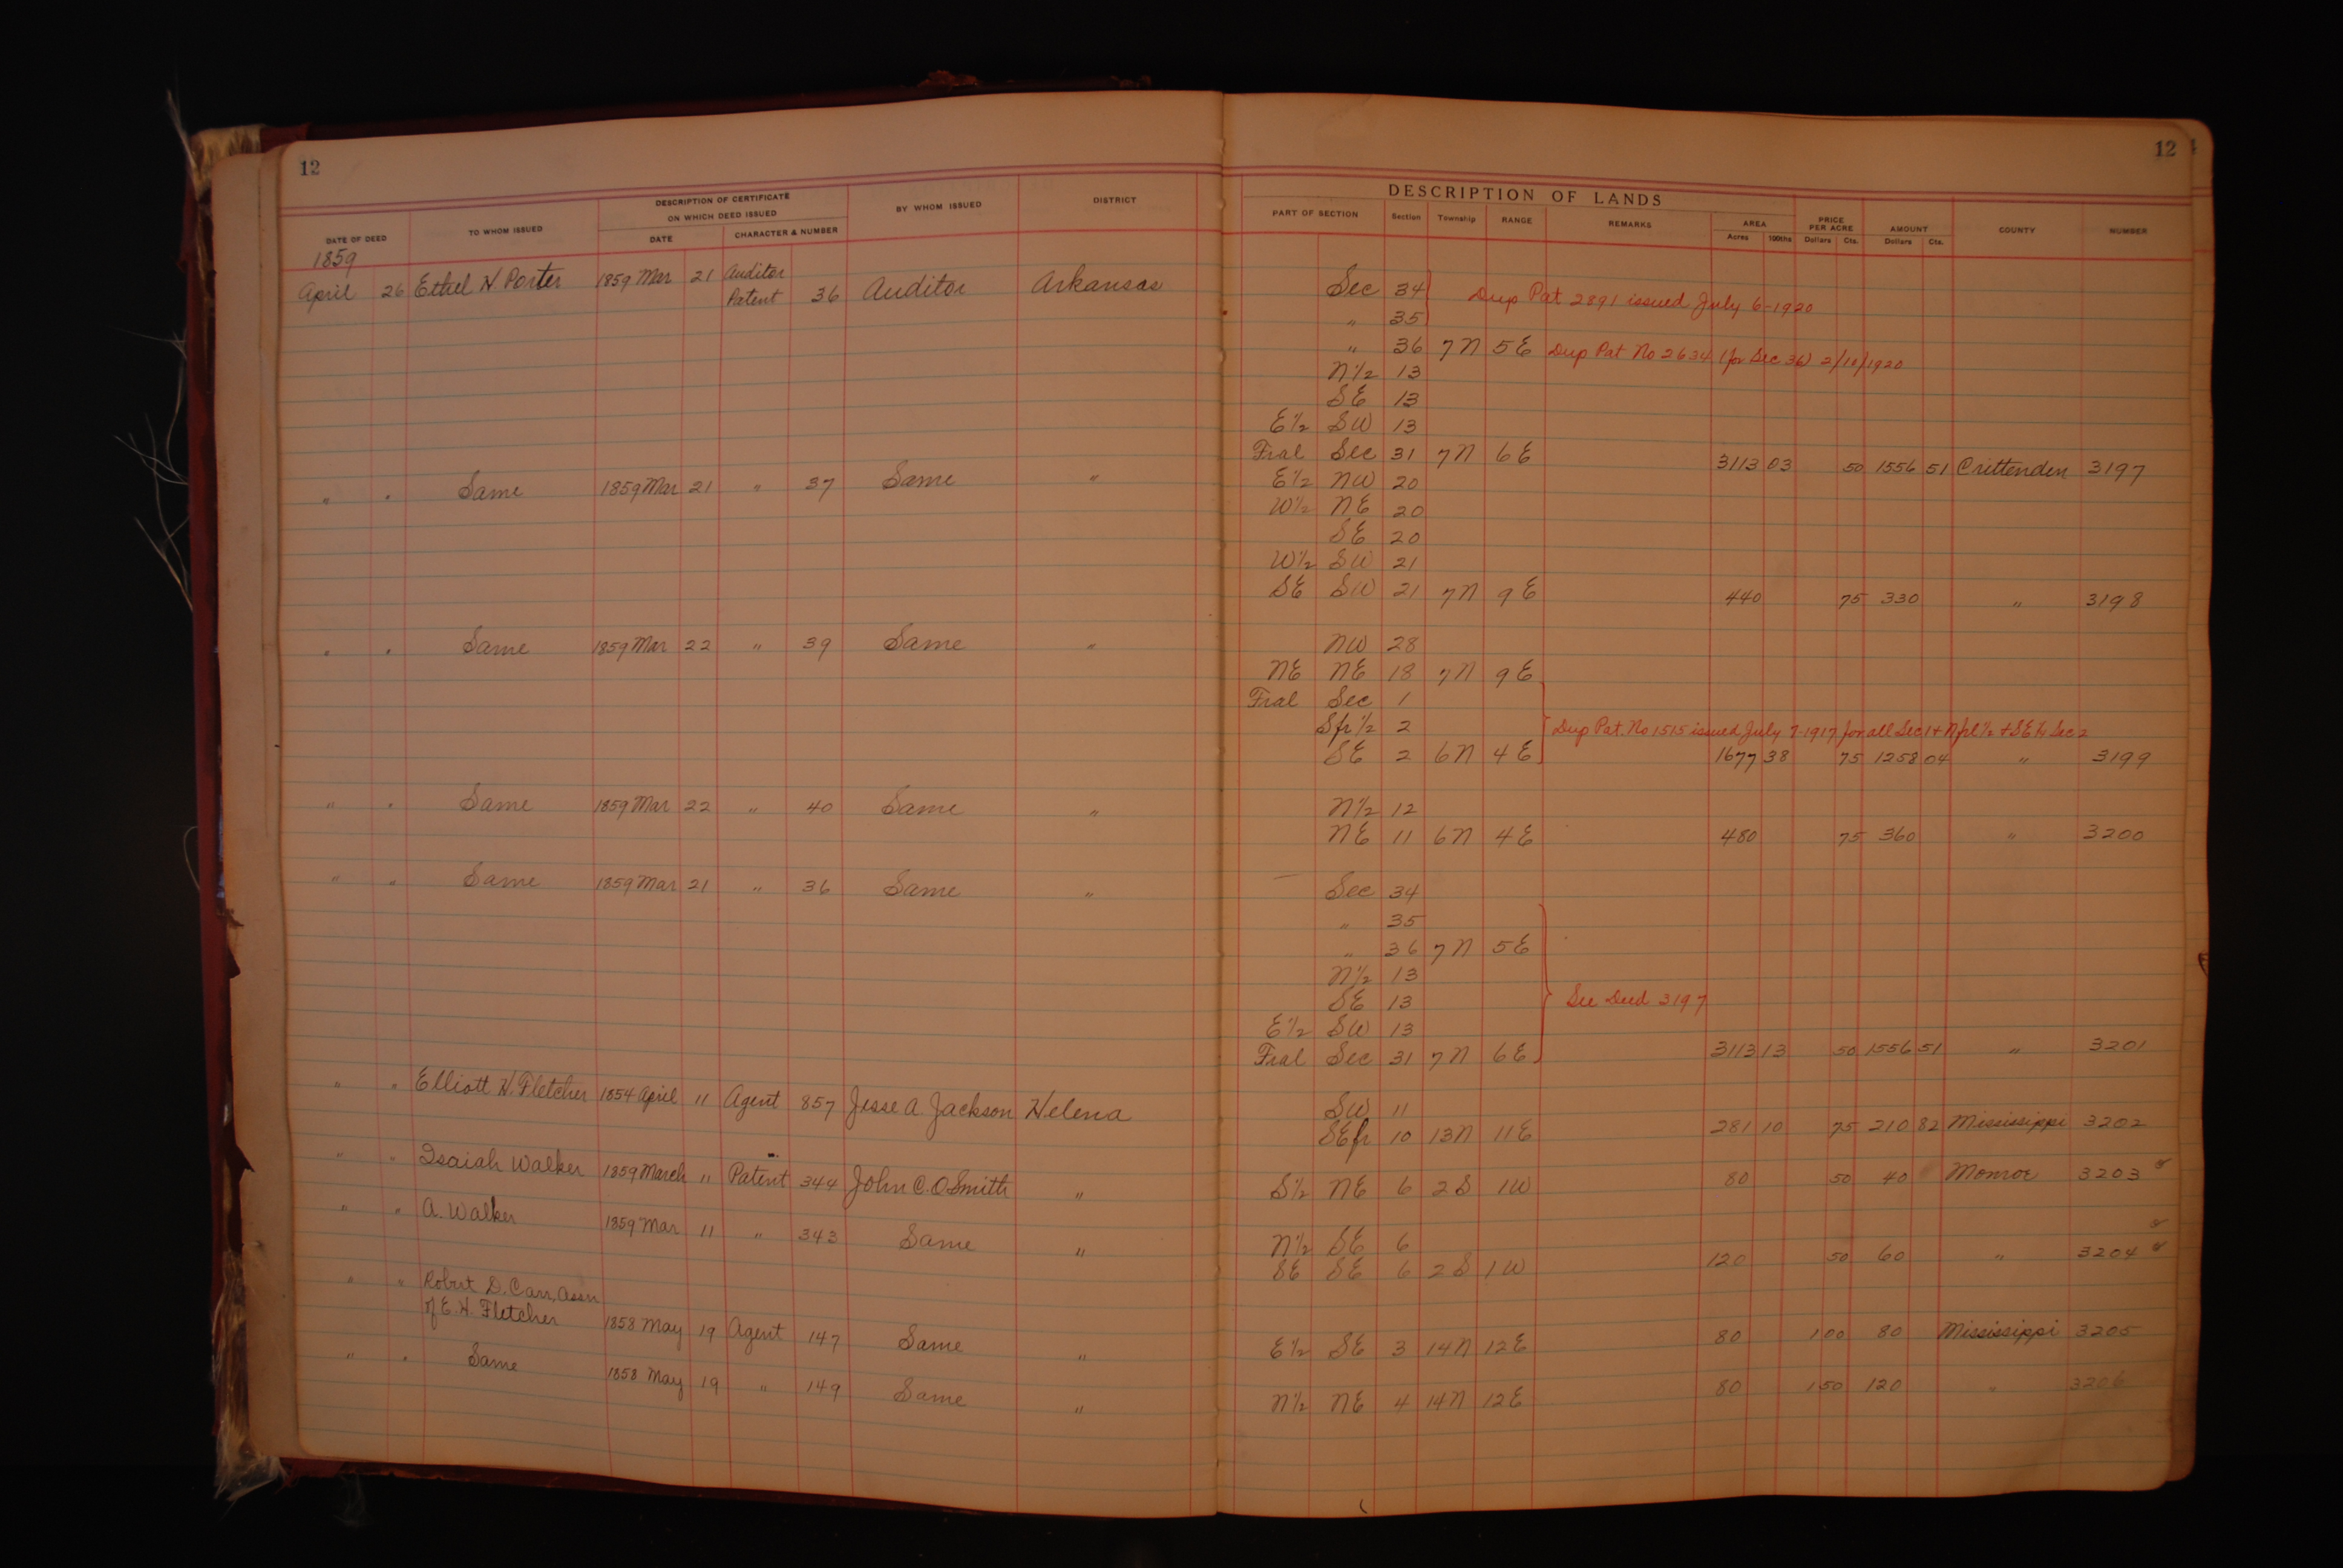 12
12
DESCRIPTION OF LANDS
DATE OF DEED TO WHOM ISSUED DESCRIPTION OF CERTIFICATE ON WHICH DEED ISSUED DATE CHARACTER & NUMBER BY WHOM ISSUED DISTRICT PART OF SECTION Section Township RANGE REMARKS AREA Acres 100ths PRICE PER ACRE Dollars Cts. AMOUNT Dollars Cts. COUNTY NUMBER
1859
April 26 Ethel H Porter 1859 Mar 21 Auditor Patent 36 Auditor Arkansas Sec 34 Dup Pat 2891 issued July 6-1920
" 35
" 36 7N 5E Dup Pat No 2634 (for Sec 36) 2/10/1920
N½ 13
SE 13
E½ SW 13
Fral Sec 31 7N 6E 3113 03 50 1556 51 Crittenden 3197
" " Same 1859 Mar 21 " 37 Same " E½ NW 20
W½ NE 20
SE 20
W½ SW 21
SE SW 21 7N 9E 440 75 330 " 3198
" " Same 1859 Mar 22 " 39 Same " NW 28
NE NE 18 7N 9E
Fral Sec 1
Sfr½ 2 Dup Pat. No 1515 issued July 7-1917 for all Sec 1 + Nfrl½ + SE¼ Sec 2
SE 2 6N 4E 1677 38 75 1258 04 " 3199
" " Same 1859 Mar 22 " 40 Same " N½ 12
NE 11 6N 4E 480 75 360 " 3200
" " Same 1859 Mar 21 " 36 Same " Sec 34
" 35
" 36 7N 5E
N½ 13
SE 13 See Deed 3197
E½ SW 13
Fral Sec 31 7N 6E 3113 13 50 1556 51 " 3201
" " Elliott H. Fletcher 1854 April 11 Agent 857 Jesse A. Jackson Helena SW 11
SEfr 10 13N 11E 281 10 75 210 82 Mississippi 3202
" " Isaiah Walker 1859 March 11 Patent 344 John C. O Smith " S½ NE 6 2S 1W 80 50 40 Monroe 3203
" " A. Walker 1859 Mar 11 " 343 Same " N½ SE 6
SE SE 6 2S 1W 120 50 60 " 3204
" " Robert D. Carr, Assn
of E. H. Fletcher 1858 May 19 Agent 147 Same " E½ SE 3 14N 12E 80 1 00 80 Mississippi 3205
" " Same 1858 May 19 " 149 Same " N½ NE 4 14N 12E 80 1 50 120 " 3206